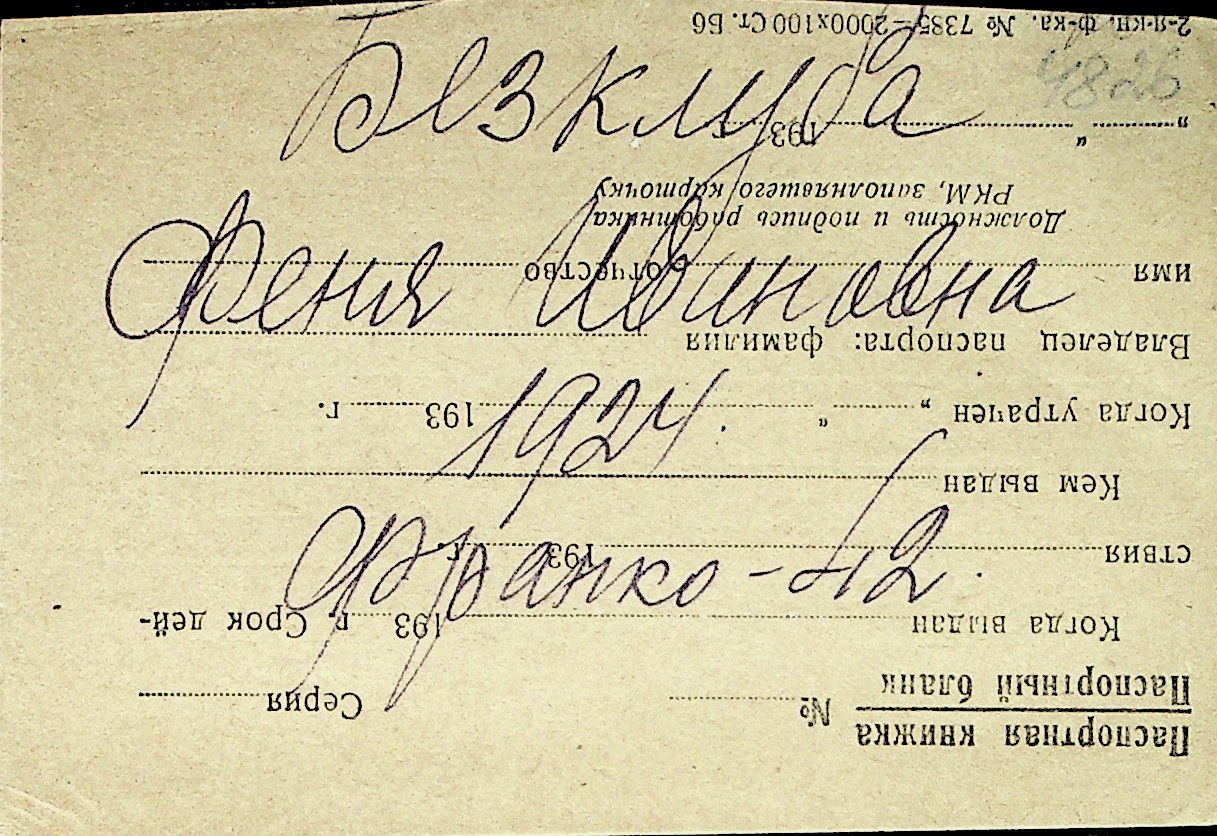 Безклуба
Феня Ивановна
1924.
Франко - 42.
4826
Паспортная книжка
Паспортный бланк
№ Серия
Когда выдан 193 г. Срок дей-
ствия 193 г.
Кем выдан
Когда утрачен „ “ 193 г.
Владелец паспорта: фамилия
имя отчество
Должность и подпись работника
РКМ, заполнявшего карточку
„ “ 193 г.
2-я кн. ф-ка. № 7385—2000х100 Ст. Бб